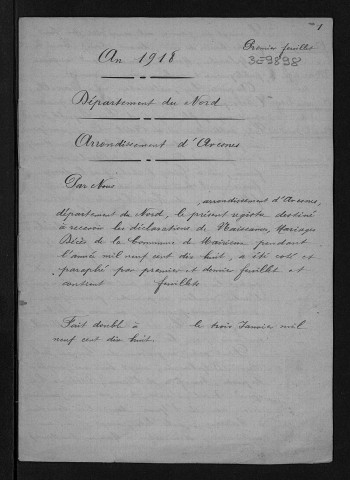 1
Premier feuillet
3E9898
An 1918
Département du Nord
Arrondissement d'Avesnes
Par Nous
, arrondissement d'Avesnes,
département du Nord, le présent registre destiné
à recevoir les déclarations de Naissances, Mariages
Décès de la Commune de pendant
l'année mil neuf cent dix huit, a été coté et
paraphé par premier et dernier feuillet et
contient feuillets
Fait double à le trois Janvier mil
neuf cent dix huit.